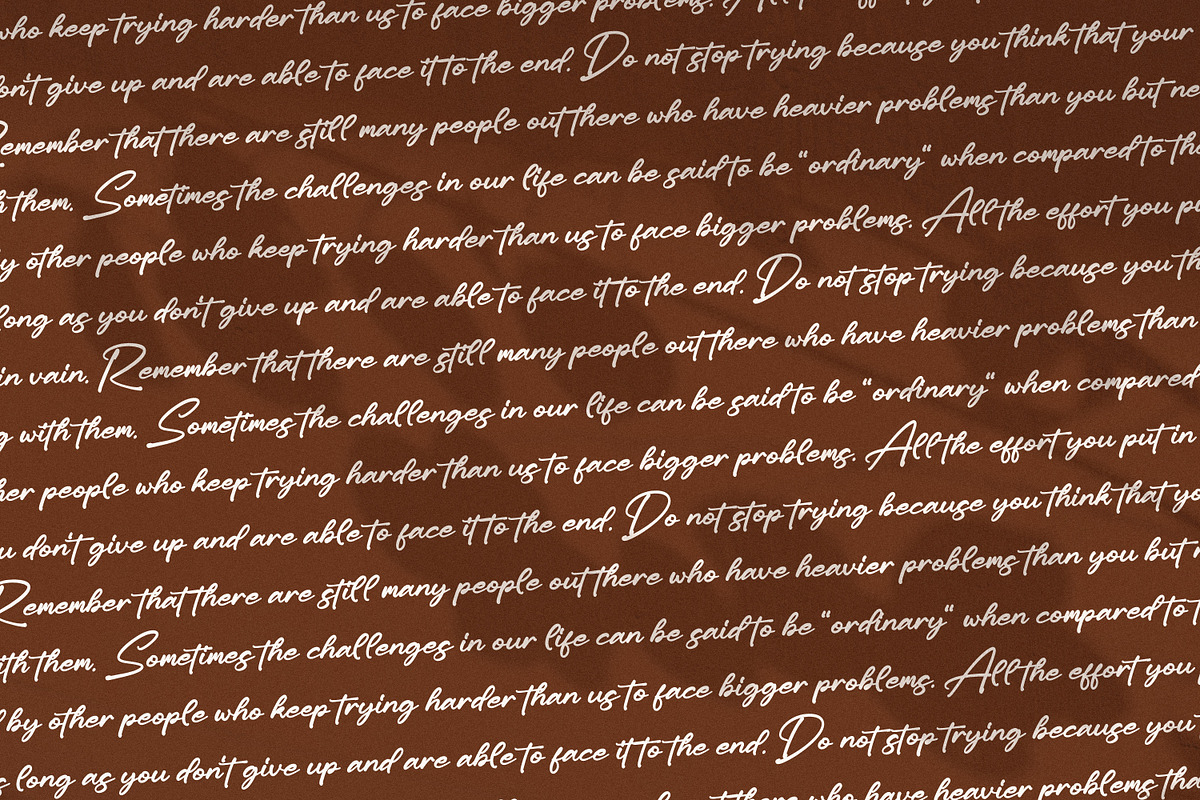 who keep trying harder than us to face bigger problems. All
don't give up and are able to face it to the end. Do not stop trying because you think that your
Remember that there are still many people out there who have heavier problems than you but
with them. Sometimes the challenges in our life can be said to be "ordinary" when compared to
by other people who keep trying harder than us to face bigger problems. All the effort you
long as you don't give up and are able to face it to the end. Do not stop trying because you
in vain. Remember that there are still many people out there who have heavier problems than
with them. Sometimes the challenges in our life can be said to be "ordinary" when compared
other people who keep trying harder than us to face bigger problems. All the effort you put in
you don't give up and are able to face it to the end. Do not stop trying because you think that
Remember that there are still many people out there who have heavier problems than you but
with them. Sometimes the challenges in our life can be said to be "ordinary" when compared to
by other people who keep trying harder than us to face bigger problems. All the effort you
as long as you don't give up and are able to face it to the end. Do not stop trying because you
who have heavier problems